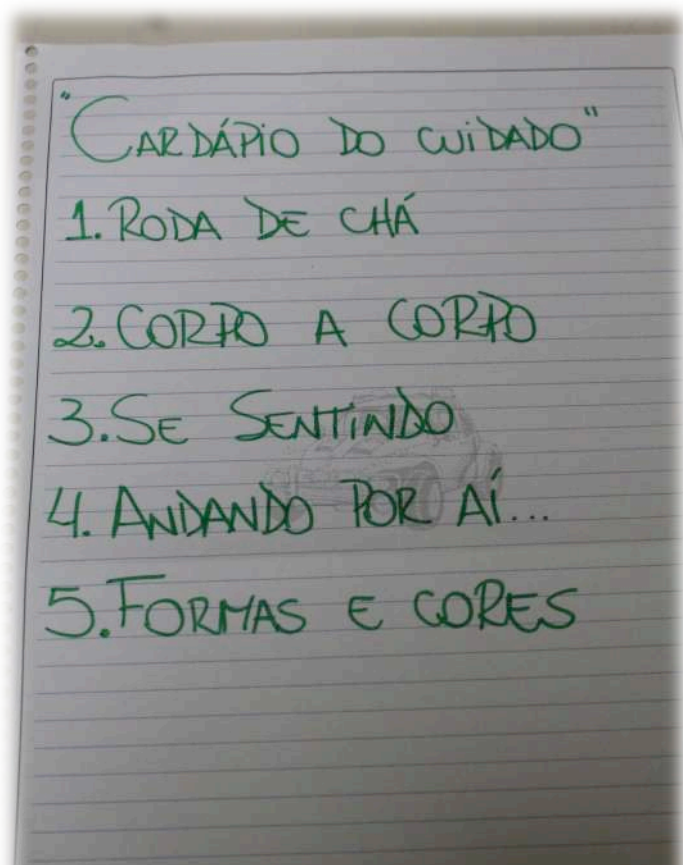 "CARDÁPIO DO CUIDADO"
1. RODA DE CHÁ
2. CORPO A CORPO
3. SE SENTINDO
4. ANDANDO POR AÍ...
5. FORMAS E CORES